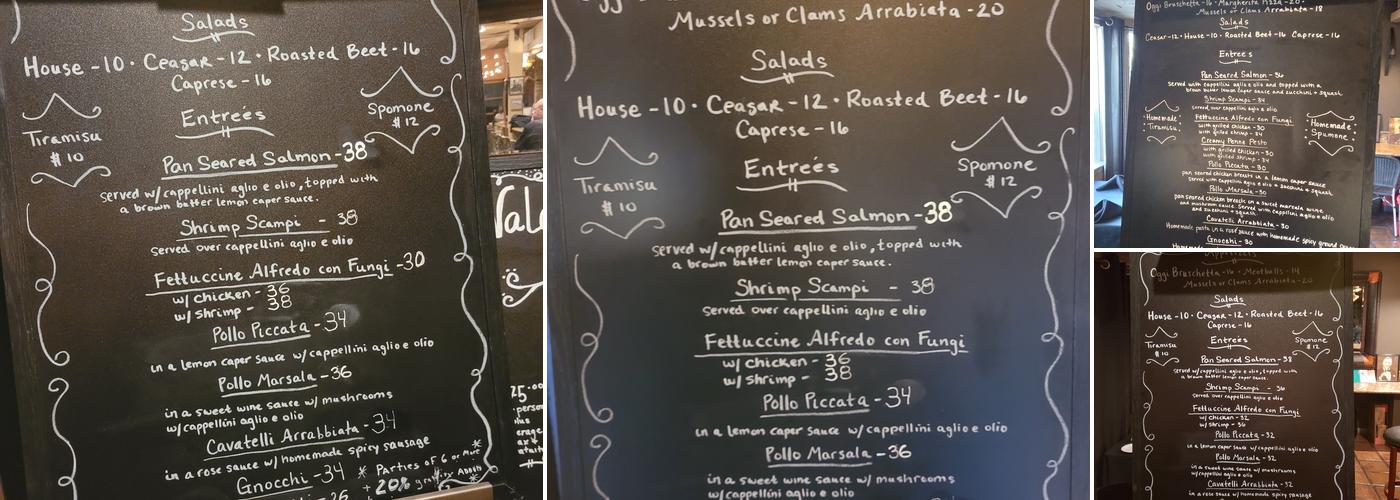 Salads
House -10 · Ceasar -12 · Roasted Beet -16
Caprese -16
Tiramisu
$10
Entreés
Spomone
$12
Pan Seared Salmon -38
served w/cappellini aglio e olio, topped with
a brown butter lemon caper sauce.
Shrimp Scampi - 38
served over cappellini aglio e olio
Fettuccine Alfredo con Fungi -30
w/ chicken - 36
w/ shrimp - 38
Pollo Piccata -34
in a lemon caper sauce w/cappellini aglio e olio
Pollo Marsala -36
in a sweet wine sauce w/ mushrooms
w/cappellini aglio e olio
Cavatelli Arrabbiata -34
in a rose sauce w/ homemade spicy sausage
Gnocchi -34
* Parties of 6 or More
+ 20%
Mussels or Clams Arrabiata -20
Salads
House -10 · Ceasar -12 · Roasted Beet -16
Caprese -16
Tiramisu
$10
Entreés
Spomone
$12
Pan Seared Salmon -38
served w/cappellini aglio e olio, topped with
a brown butter lemon caper sauce.
Shrimp Scampi - 38
served over cappellini aglio e olio
Fettuccine Alfredo con Fungi
w/ chicken - 36
w/ shrimp - 38
Pollo Piccata -34
in a lemon caper sauce w/cappellini aglio e olio
Pollo Marsala -36
in a sweet wine sauce w/ mushrooms
w/cappellini aglio e olio
Oggi Bruschetta -16 · Margherita Pizza -20 ·
Mussels or Clams Arrabiata -18
Salads
Ceasar -12 · House -10 · Roasted Beet -16 Caprese -16
Entrees
Pan Seared Salmon - 36
served with cappellini aglio e olio and topped with a
brown butter lemon caper sauce and zucchini + squash
Shrimp Scampi - 34
served over cappellini aglio e olio
Homemade
Tiramisu
Fettuccine Alfredo con Fungi
with grilled chicken -30
with grilled shrimp - 34
Homemade
Spumone
Creamy Penne Pesto
with grilled chicken -30
with grilled shrimp - 34
Pollo Piccata - 30
pan seared chicken breasts in a lemon caper sauce
served with cappellini aglio e olio + zucchini + squash
Pollo Marsala -30
pan seared chicken breasts in a sweet marsala wine
and mushroom sauce. Served with cappellini aglio e olio
and zucchini + squash
Cavatelli Arrabbiata -30
Homemade pasta in a rose sauce with homemade spicy ground
Gnocchi - 30
Appetizers
Oggi Bruschetta -16 · Meatballs -14
Mussels or Clams Arrabiata -20
Salads
House -10 · Ceasar -12 · Roasted Beet -16
Caprese -16
Tiramisu
$10
Entreés
Spomone
$12
Pan Seared Salmon -38
served w/cappellini aglio e olio, topped with
a brown butter lemon caper sauce.
Shrimp Scampi - 36
served over cappellini aglio e olio
Fettuccine Alfredo con Fungi
w/ chicken - 32
w/ shrimp - 36
Pollo Piccata - 32
in a lemon caper sauce w/cappellini aglio e olio
Pollo Marsala - 32
in a sweet wine sauce w/ mushrooms
w/cappellini aglio e olio
Cavatelli Arrabbiata -32
in a rose sauce w/ homemade spicy sausage